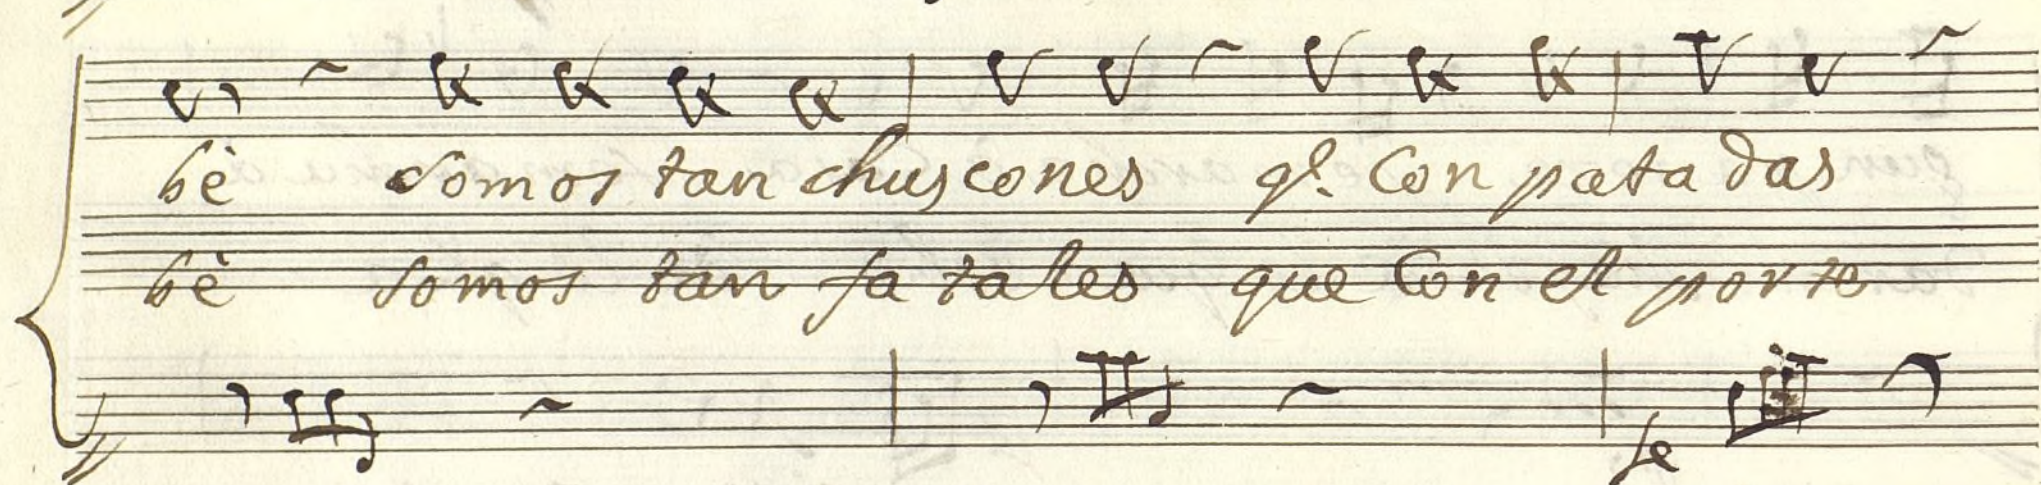 bè somos tan chuscones qe. Con patadas
bè somos tan fatales que Con el porte
fe